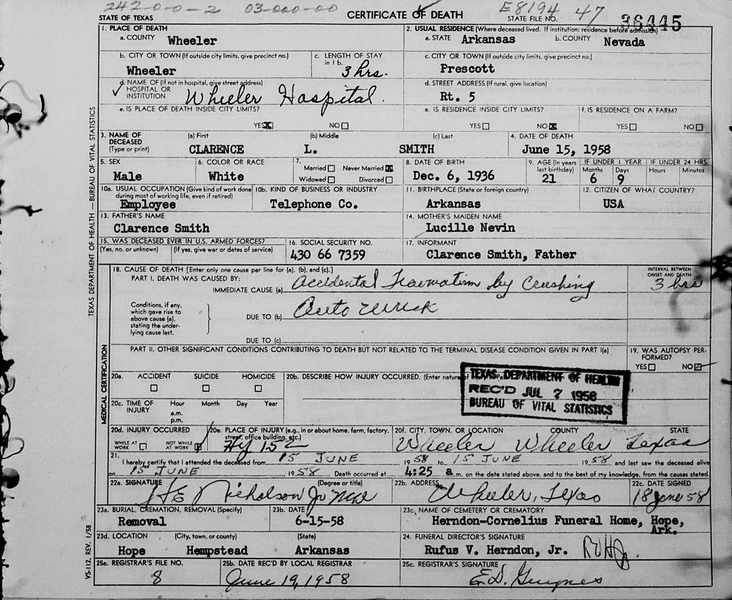 242-0-0-2 03-000-00 E8194 47
STATE OF TEXAS CERTIFICATE OF DEATH STATE FILE NO. 36445
1. PLACE OF DEATH 2. USUAL RESIDENCE (Where deceased lived. If institution: residence before admission)
a. COUNTY Wheeler a. STATE Arkansas b. COUNTY Nevada
b. CITY OR TOWN (If outside city limits, give precinct no.) c. LENGTH OF STAY in 1 b. c. CITY OR TOWN (If outside city limits, give precinct no.)
Wheeler 3 hrs. Prescott
d. NAME OF (If not in hospital, give street address) HOSPITAL OR INSTITUTION Wheeler Hospital d. STREET ADDRESS (If rural, give location)
Rt. 5
e. IS PLACE OF DEATH INSIDE CITY LIMITS? e. IS RESIDENCE INSIDE CITY LIMITS? f. IS RESIDENCE ON A FARM?
YES NO YES NO YES NO
3. NAME OF DECEASED (Type or print) (a) First (b) Middle (c) Last 4. DATE OF DEATH
CLARENCE L. SMITH June 15, 1958
5. SEX 6. COLOR OR RACE 7. Married Never Married Widowed Divorced 8. DATE OF BIRTH 9. AGE (In years last birthday) IF UNDER 1 YEAR IF UNDER 24 HRS.
Months Days Hours Minutes
Male White Dec. 6, 1936 21 6 9
10a. USUAL OCCUPATION (Give kind of work done during most of working life, even if retired) 10b. KIND OF BUSINESS OR INDUSTRY 11. BIRTHPLACE (State or foreign country) 12. CITIZEN OF WHAT COUNTRY?
Employee Telephone Co. Arkansas USA
13. FATHER'S NAME 14. MOTHER'S MAIDEN NAME
Clarence Smith Lucille Nevin
15. WAS DECEASED EVER IN U.S. ARMED FORCES? 16. SOCIAL SECURITY NO. 17. INFORMANT
(Yes, no, or unknown) (If yes, give war or dates of service) 430 66 7359 Clarence Smith, Father
18. CAUSE OF DEATH [Enter only one cause per line for (a), (b), and (c).] INTERVAL BETWEEN ONSET AND DEATH
PART I. DEATH WAS CAUSED BY:
IMMEDIATE CAUSE (a) Accidental Traumatism by Crushing 3 hrs
Conditions, if any, which gave rise to above cause (a), stating the underlying cause last. DUE TO (b) Auto Wreck
DUE TO (c)
PART II. OTHER SIGNIFICANT CONDITIONS CONTRIBUTING TO DEATH BUT NOT RELATED TO THE TERMINAL DISEASE CONDITION GIVEN IN PART I(a) 19. WAS AUTOPSY PERFORMED?
YES NO
20a. ACCIDENT SUICIDE HOMICIDE 20b. DESCRIBE HOW INJURY OCCURRED.
TEXAS DEPARTMENT OF HEALTH
REC'D JUL 7 1958
BUREAU OF VITAL STATISTICS
20c. TIME OF INJURY Hour Month, Day, Year
a.m.
p.m.
20d. INJURY OCCURRED 20e. PLACE OF INJURY (e.g., in or about home, farm, factory, street, office building, etc.) 20f. CITY, TOWN, OR LOCATION COUNTY STATE
WHILE AT WORK NOT WHILE AT WORK Hy 152 Wheeler Wheeler Texas
21. I hereby certify that I attended the deceased from 15 JUNE 1958 to 15 JUNE 1958 and last saw the deceased alive
on 15 JUNE 1958 Death occurred at 4:25 a.m. on the date stated above, and to the best of my knowledge, from the causes stated.
22a. SIGNATURE (Degree or title) 22b. ADDRESS 22c. DATE SIGNED
H E Nicholson Jr Wheeler, Texas 18 June 58
23a. BURIAL, CREMATION, REMOVAL (Specify) 23b. DATE 23c. NAME OF CEMETERY OR CREMATORY
Removal 6-15-58 Herndon-Cornelius Funeral Home, Hope, Ark.
23d. LOCATION (City, town, or county) (State) 24. FUNERAL DIRECTOR'S SIGNATURE
Hope Hempstead Arkansas Rufus V. Herndon, Jr.
25a. REGISTRAR'S FILE NO. 25b. DATE REC'D BY LOCAL REGISTRAR 25c. REGISTRAR'S SIGNATURE
8 June 19, 1958
TEXAS DEPARTMENT OF HEALTH — BUREAU OF VITAL STATISTICS
MEDICAL CERTIFICATION
VS-112, REV. 1/58